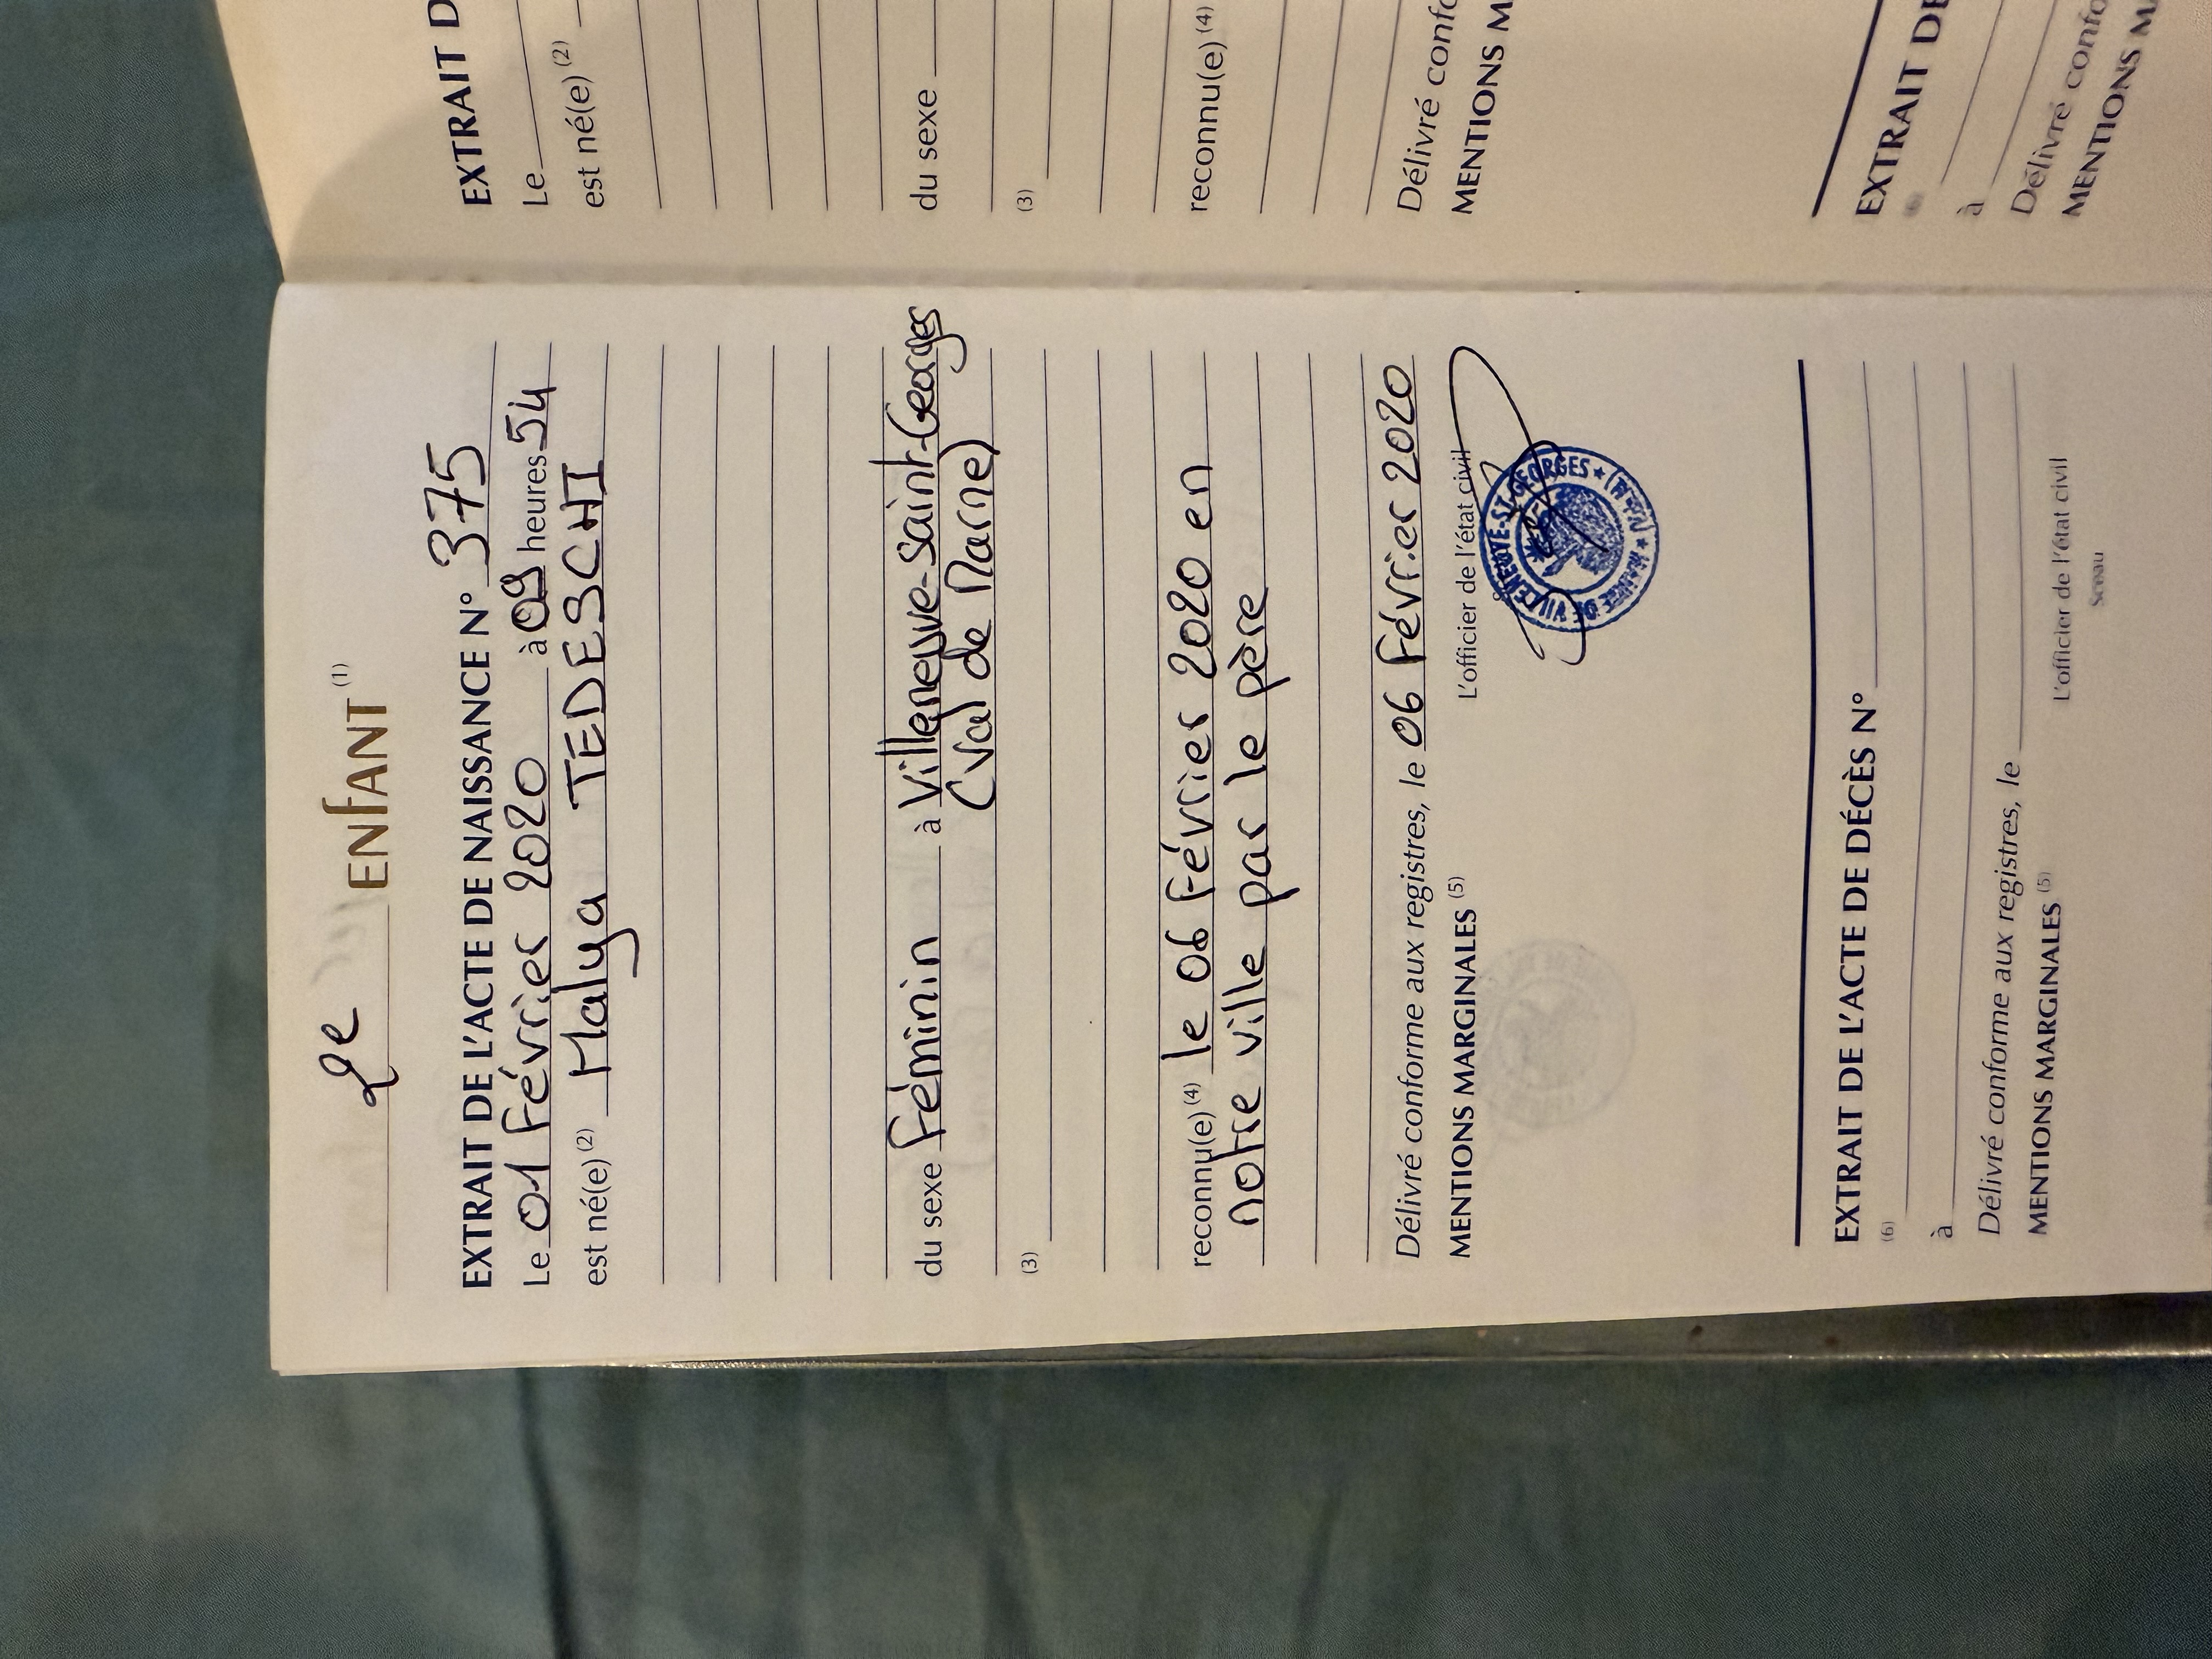 2e ENFANT (1)
EXTRAIT DE L'ACTE DE NAISSANCE N° 375
Le 01 Février 2020 à 09 heures 54
est né(e) (2) Malya TEDESCHI
du sexe Féminin à Villeneuve-Saint-Georges
(Val de Marne)
(3)
reconnu(e) (4) le 06 Février 2020 en
notre ville par le père
Délivré conforme aux registres, le 06 Février 2020
MENTIONS MARGINALES (5) L'officier de l'état civil
MAIRIE DE VILLENEUVE-ST-GEORGES
EXTRAIT DE L'ACTE DE DÉCÈS N°
(6)
à
Délivré conforme aux registres, le
MENTIONS MARGINALES (5) L'officier de l'état civil
Sceau
EXTRAIT D
Le
est né(e) (2)
du sexe
(3)
reconnu(e) (4)
Délivré confo
MENTIONS M
EXTRAIT DE
(6)
à
Délivré confo
MENTIONS MA